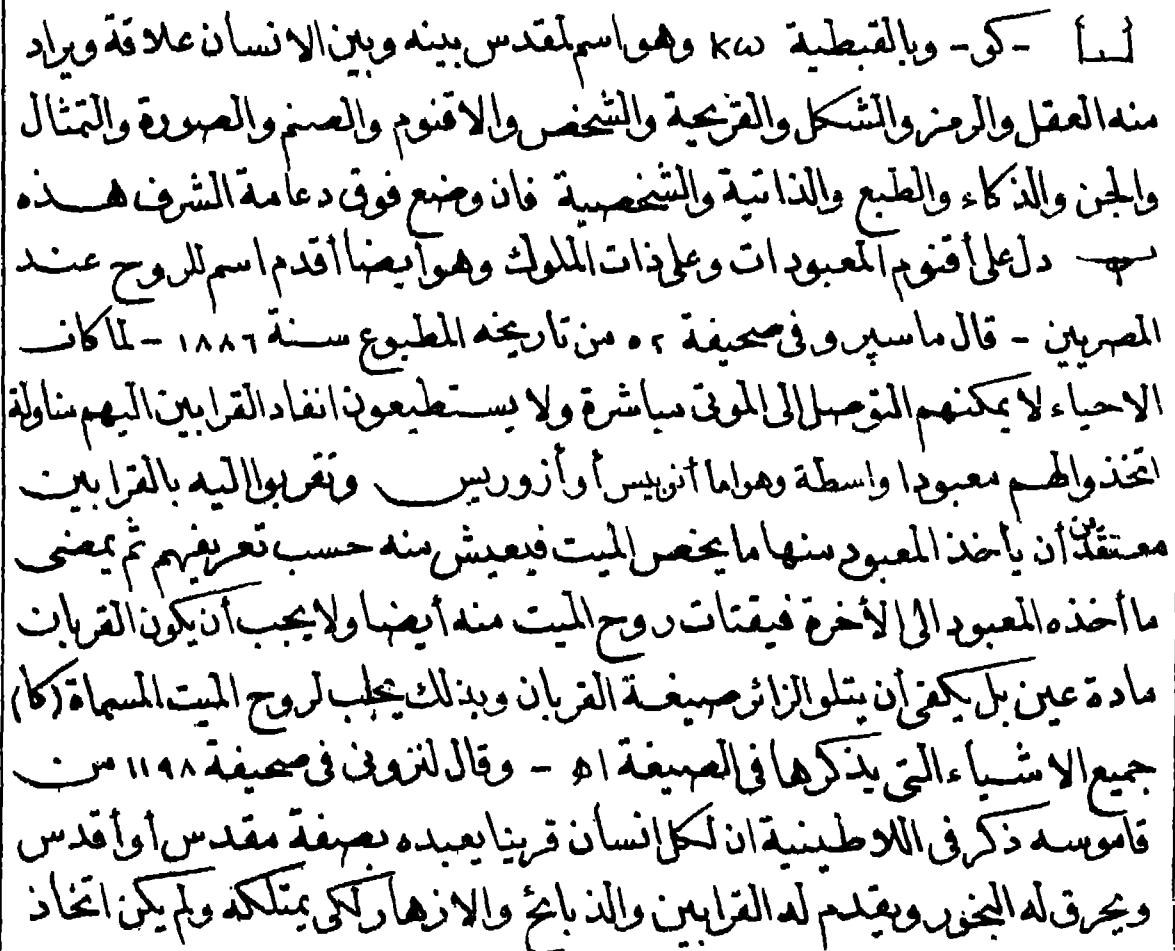 𓂓 -كو- وبالقبطية κω وهو اسم لمقدس بينه وبين الانسان علاقة ويراد
منه العقل والرمز والشكل والقريحة والشخص والاقنوم والصنم والصورة والتمثال
والجن والذكاء والطبع والذاتية والشخصية فان وضع فوق دعامة الشرف هــذه
دل على أقنوم المعبودات وعلى ذات الملوك وهو أيضا أقدم اسم للروح عنــد
المصريين - قال ماسپرو فى صحيفة ٥٢ من تاريخه المطبوع ســنة ١٨٨٦ - لما كانت
الاحياء لا يمكنهم التوصل الى الموتى مباشرة ولا يســتطيعون انفاد القرابين اليهم مناولة
اتخذوا لهــم معبودا واسطة وهو اما أنوبيس أو أزوريس وتقربوا اليه بالقرابين
معتقدين أن يأخذ المعبود منها ما يخص الميت فيعيش منه حسب تعريفهم ثم يمضى
ما أخذه المعبود الى الأخرة فيقتات روح الميت منه أيضا ولا يجب أن يكون القربان
مادة عين بل يكفى أن يتلو الزائر صيغــة القربان وبذلك يجلب لروح الميت المسماة (كا)
جميع الاشــياء التى يذكرها فى الصيغة اه - وقال لنزونى فى صحيفة ١١٩٨ من
قاموســه ذكر فى اللاطينية ان لكل انسان قرينا يعبده بصفة مقدس أو أقدس
ويحرق له البخور ويقدم له القرابين والذبائح والازهار لكى يمتلكه ولم يكن اتخاذ